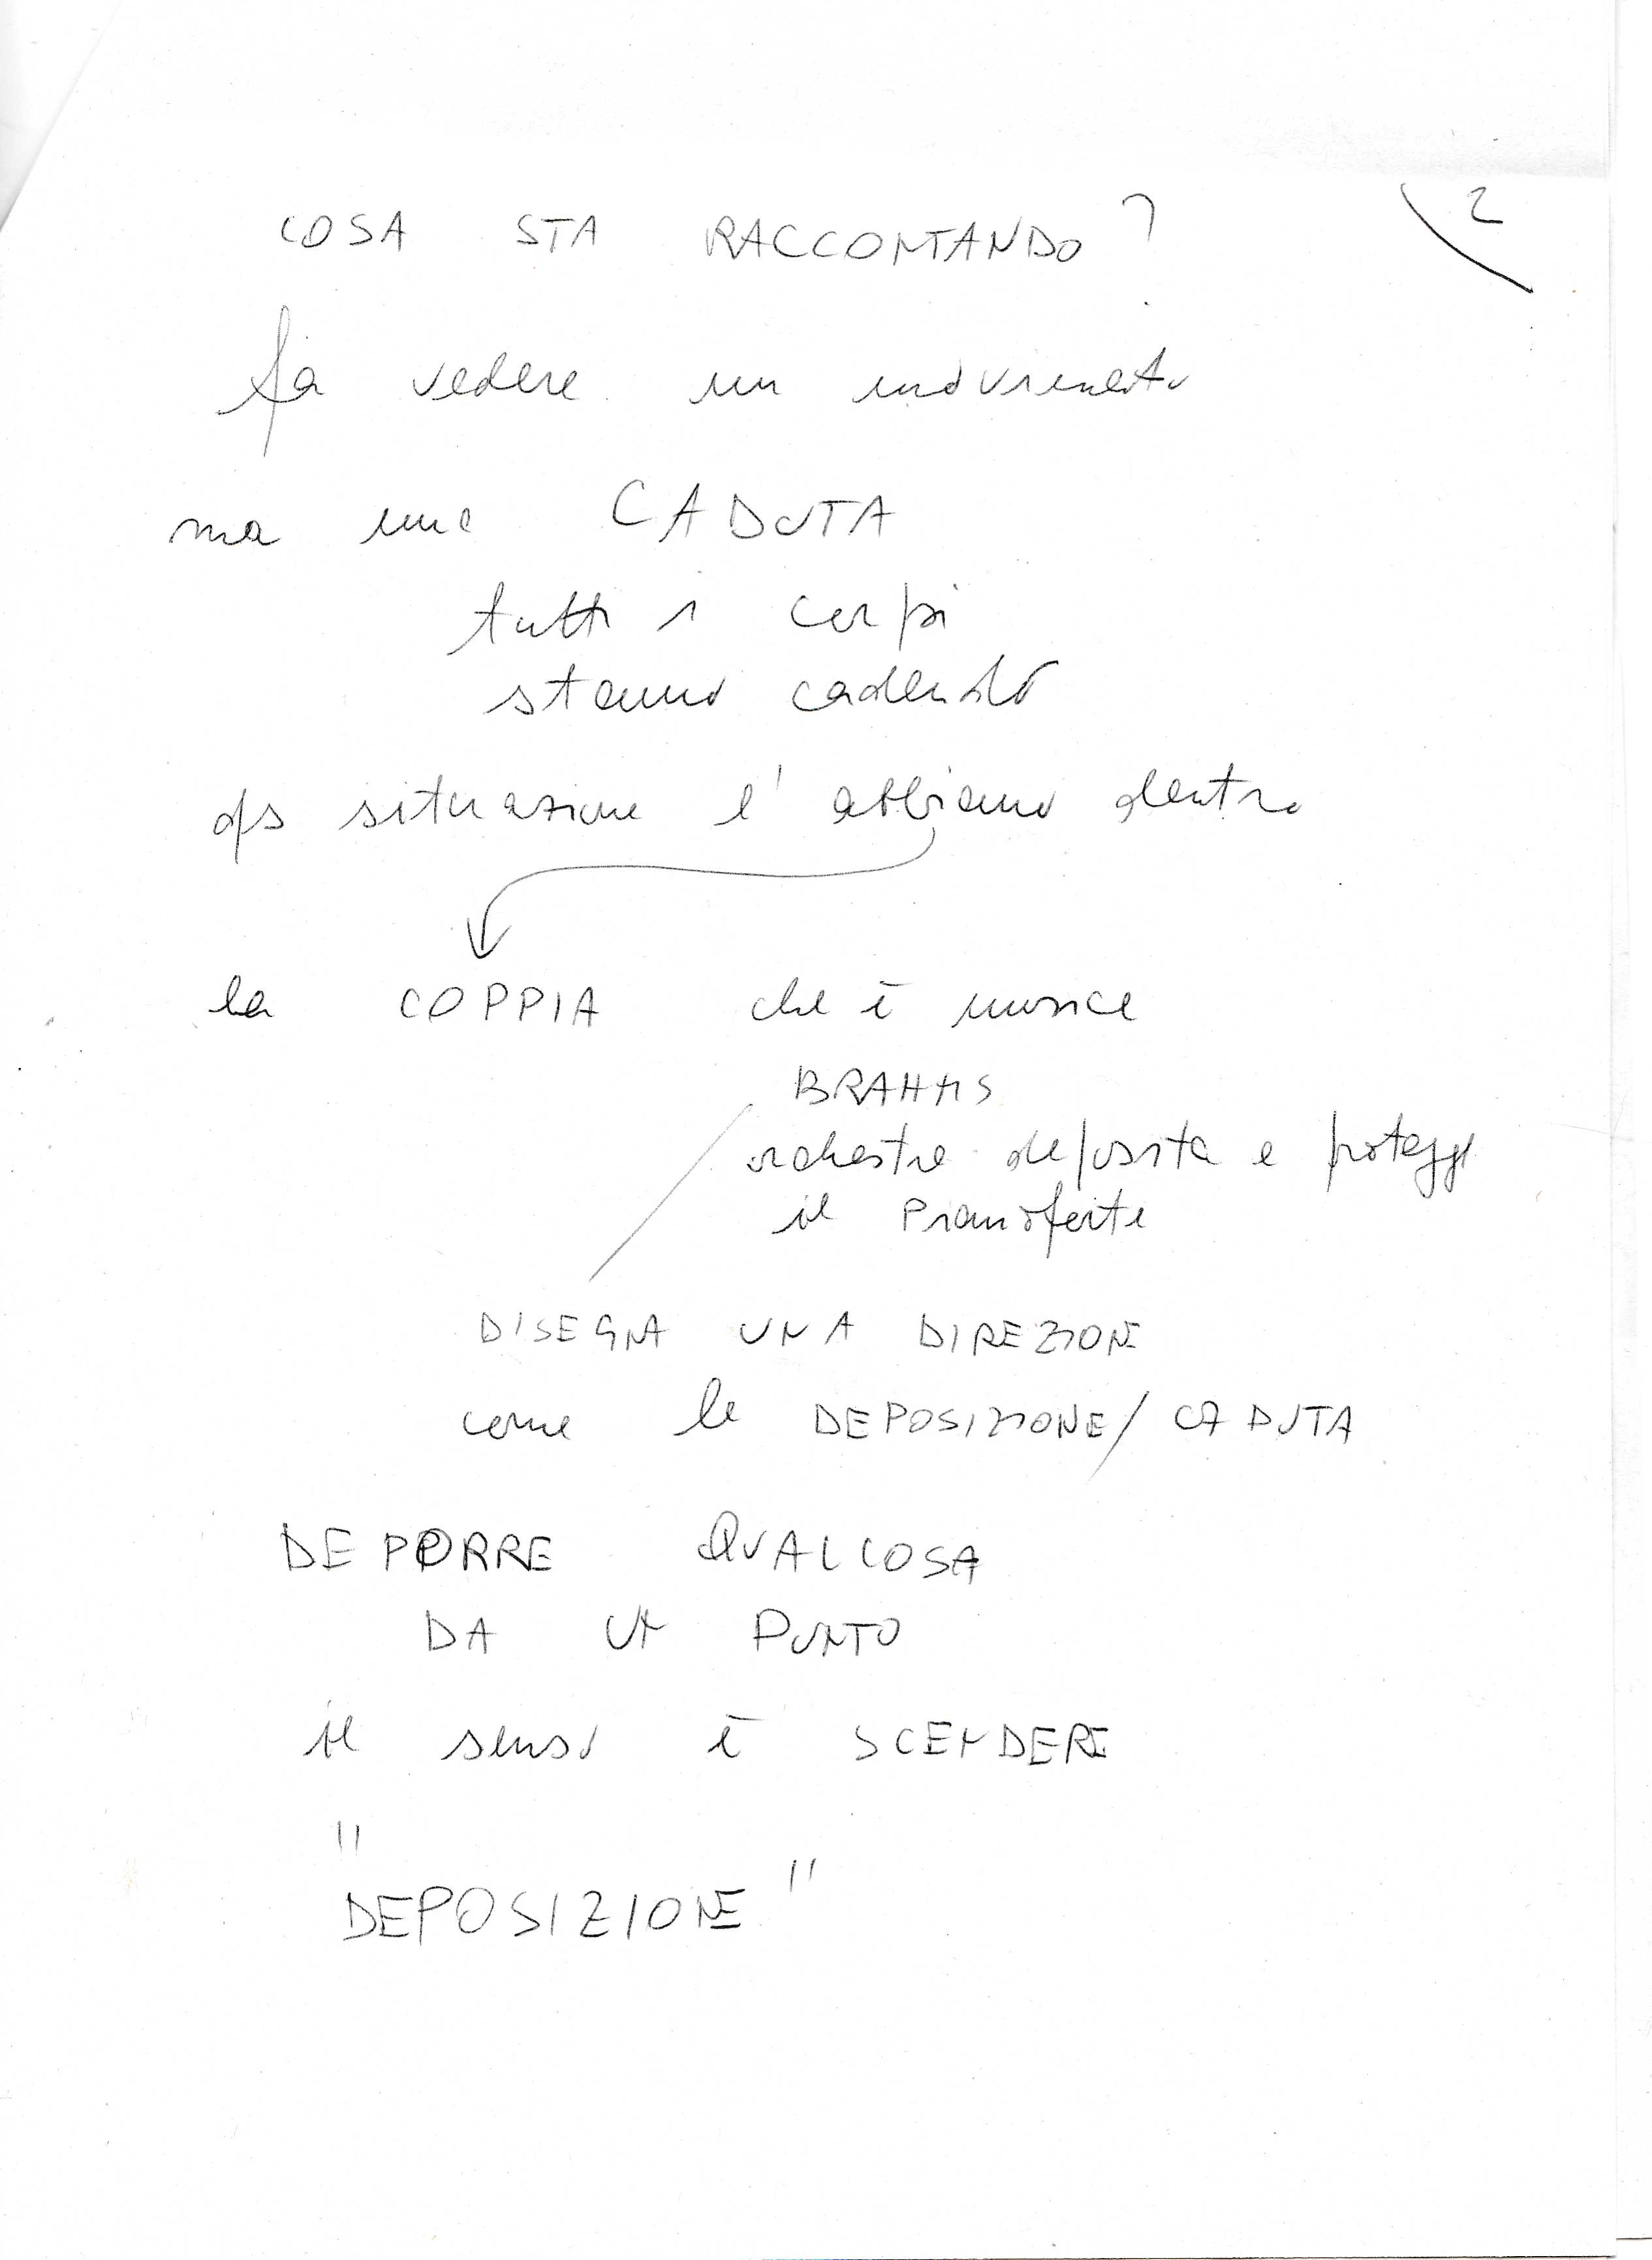 2
COSA STA RACCONTANDO?
fa vedere un movimento
ma una CADUTA
tutti i corpi
stanno cadendo
qs situazione l'abbiamo dentro
la COPPIA che è musica
BRAHMS
orchestra deposita e protegge
il Pianoforte
DISEGNA UNA DIREZIONE
come la DEPOSIZIONE/CADUTA
DEPORRE QUALCOSA
DA UN PUNTO
il senso è SCENDERE
"DEPOSIZIONE"